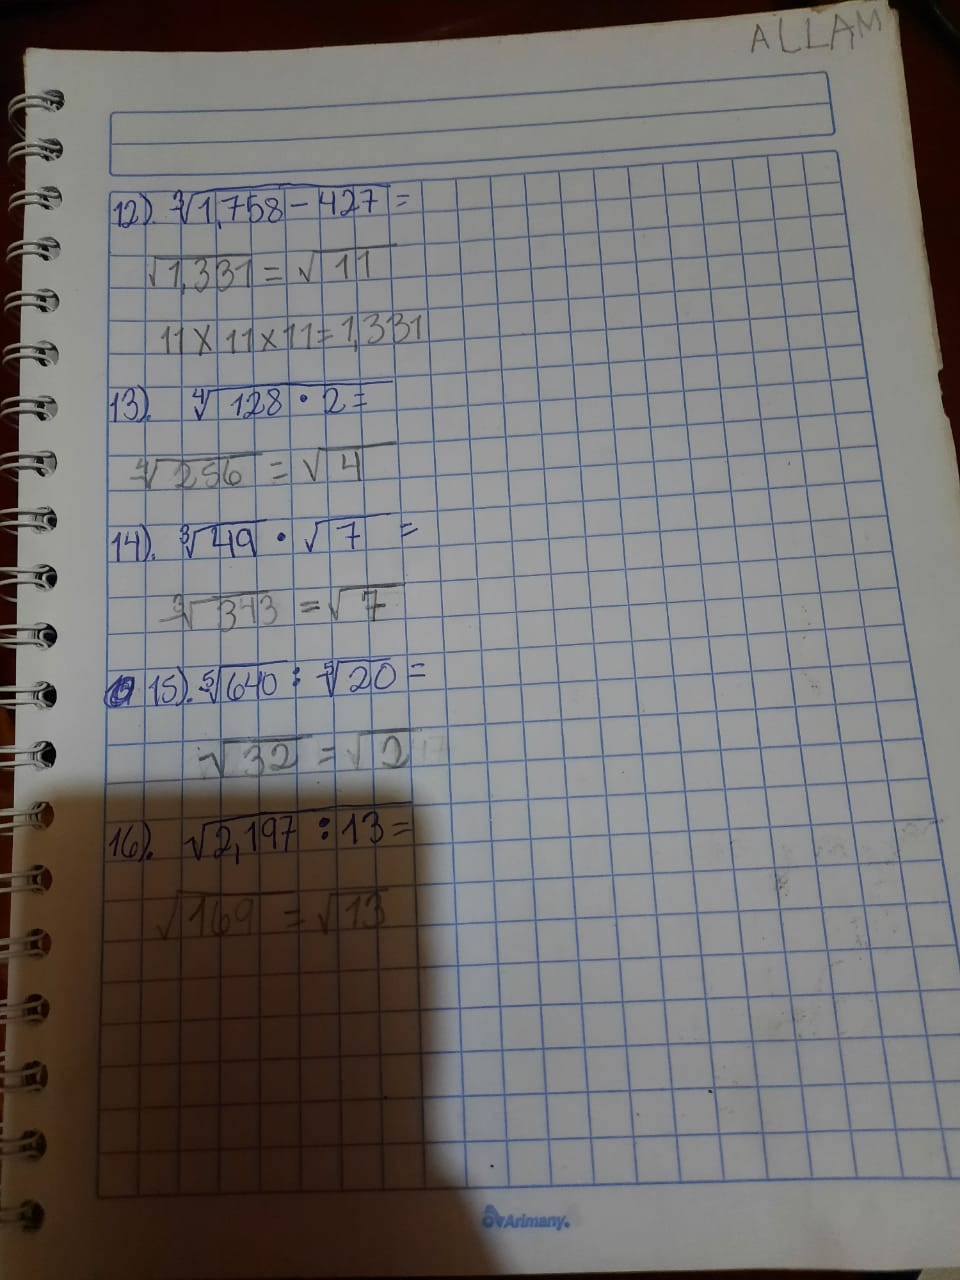 ALLAM
12). ∛1,758 - 427 =
√1,331 = √11
11 x 11 x 11 = 1,331
13). ∜128 · 2 =
∜256 = √4
14). ∛49 · √7 =
∛343 = √7
15). ⁵√640 : ⁵√20 =
√32 = √2
16). √2,197 : 13 =
√169 = √13
Arimany.